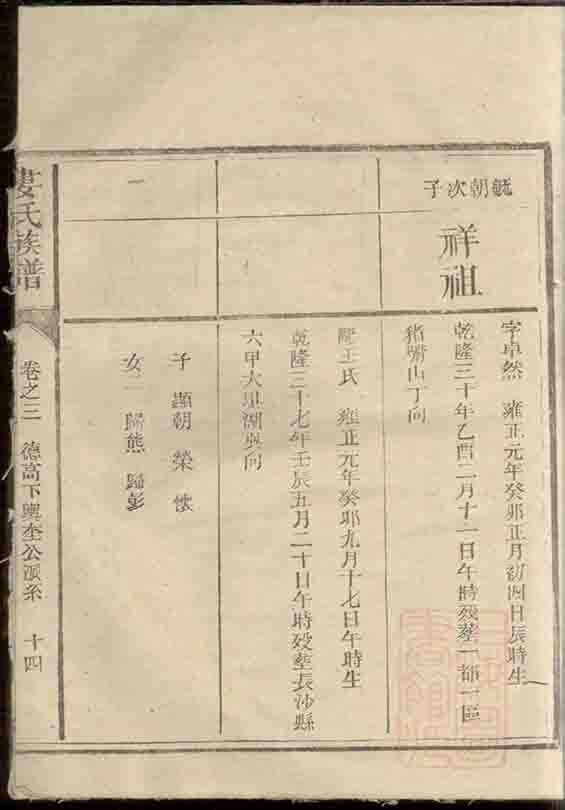 毓朝次子
祥祖
字卓然 雍正元年癸卯正月初四日辰時生
乾隆三十年乙酉二月十一日午時歿塟一都一區
猪嘴山丁向
配王氏 雍正元年癸卯九月十七日午時生
乾隆三十七年壬辰五月二十日午時歿塟長沙縣
六甲大星湖巽向
子 顯朝 榮 懷
女二 歸熊 歸彭
婁氏族譜
卷之三 德高下興奎公派系 十四